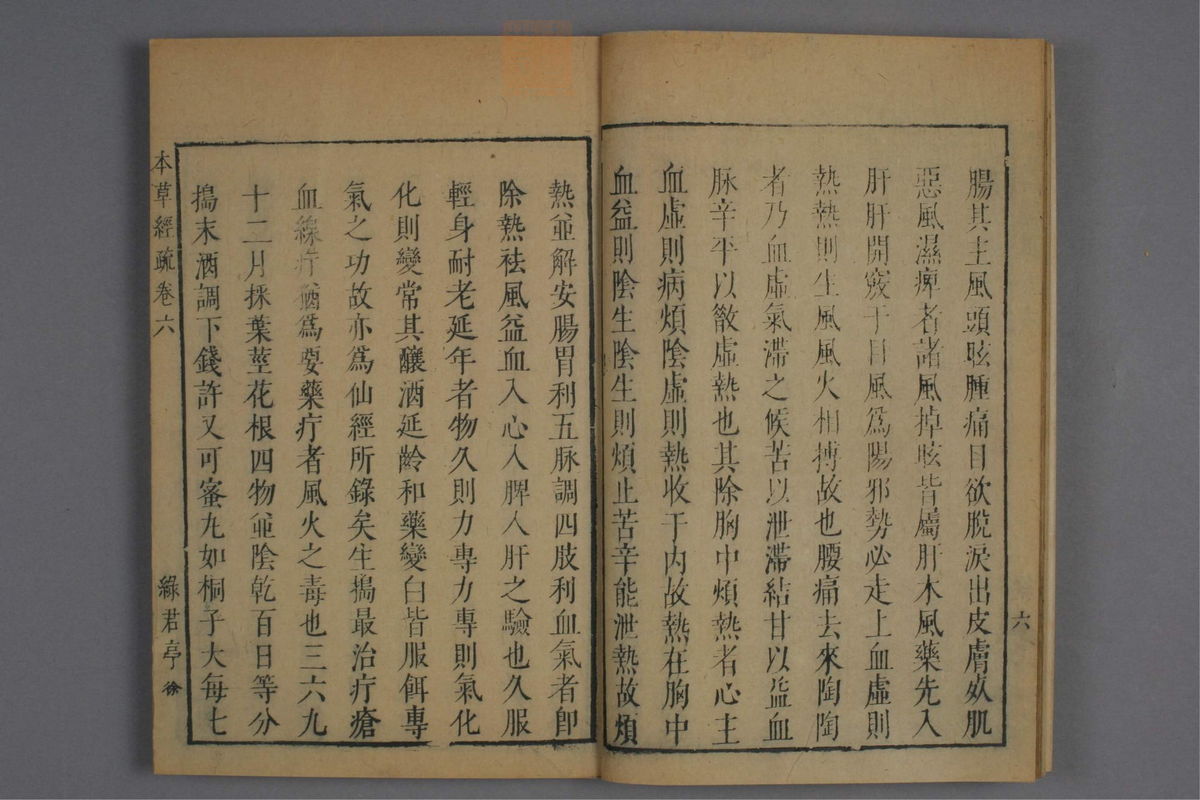 腸其主風頭眩腫痛目欲脫淚出皮膚奴肌
惡風濕痺者諸風掉眩皆屬肝木風藥先入
肝肝開竅于目風爲陽邪勢必走上血虛則
熱熱則生風風火相搏故也腰痛去來陶陶
者乃血虛氣滯之候苦以泄滯結甘以益血
脉辛平以散虛熱也其除胸中煩熱者心主
血虛則病煩陰虛則熱收于內故熱在胸中
血益則陰生陰生則煩止苦辛能泄熱故煩
六
熱並解安腸胃利五脉調四肢利血氣者卽
除熱祛風益血入心入脾入肝之驗也久服
輕身耐老延年者物久則力專力專則氣化
化則變常其釀酒延齡和藥變白皆服餌專
氣之功故亦爲仙經所錄矣生搗最治疔瘡
血線疔猶爲要藥疔者風火之毒也三六九
十二月採葉莖花根四物並陰乾百日等分
搗末酒調下錢許又可蜜丸如桐子大每七
本草經疏卷六
綠君亭 徐